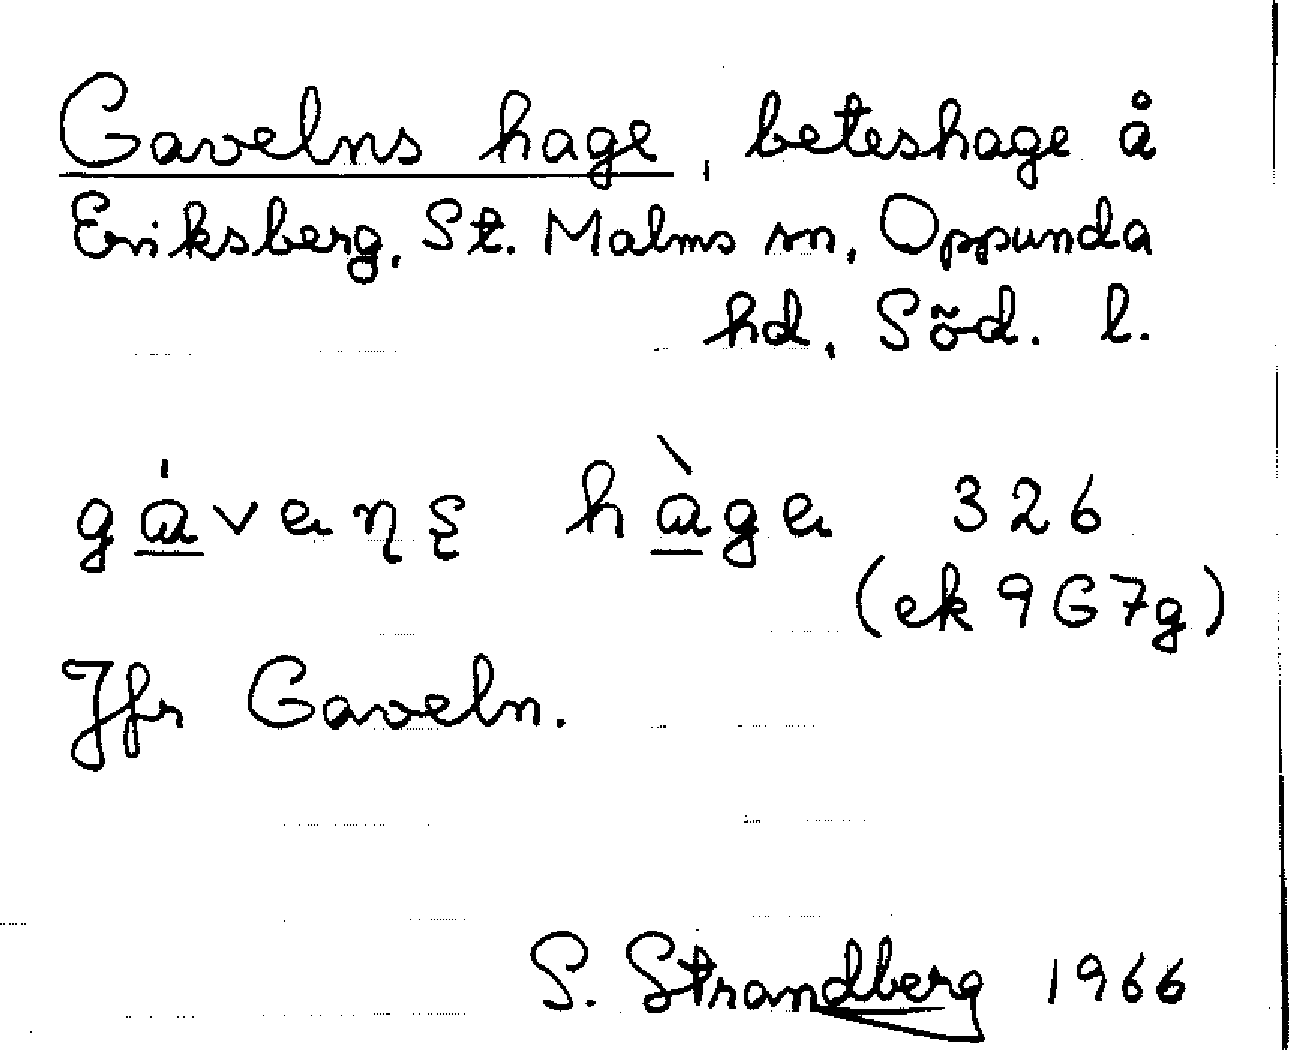 Gavelns hage, beteshage å
Eriksberg, St. Malms sn, Oppunda
hd, Söd. l.
gávęɳʂ hàgę 326
(ek 9G7g)
Jfr Gaveln.
S. Strandberg 1966